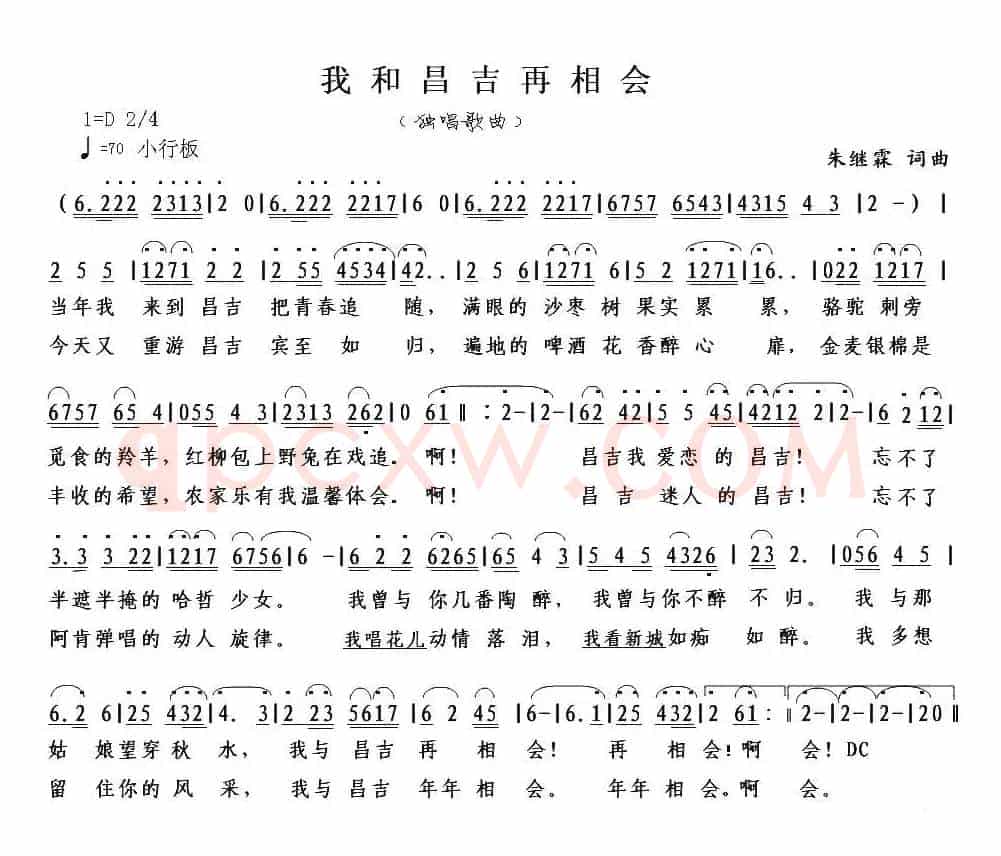 我和昌吉再相会
1=D 2/4 (独唱歌曲)
♩=70 小行板
朱继霖 词曲
(6.222 2313|2 0|6.222 2217|6 0|6.222 2217|6757 6543|4315 4 3|2 -)|
2 5 5|1271 2 2|2 55 4534|42..|2 5 6|1271 6|5 2 1271|16..|022 1217|
当年我 来到 昌吉 把青春追 随, 满眼的 沙枣 树 果实 累 累, 骆驼 刺旁
今天又 重游 昌吉 宾至 如 归, 遍地的 啤酒 花 香醉 心 扉, 金麦银棉是
6757 65 4|055 4 3|2313 262|0 61‖:2-|2-|62 42|5 5 45|4212 2|2-|6 2 12|
觅食的羚羊, 红柳包上野兔在戏追。 啊! 昌吉我 爱恋 的 昌吉! 忘不了
丰收的希望, 农家乐有我温馨体会。 啊! 昌 吉 迷人 的 昌吉! 忘不了
3.3 3 22|1217 6756|6 -|6 2 2 6265|65 4 3|5 45 4326|23 2.|056 4 5|
半遮半掩的 哈哲 少女。 我曾与 你几番陶 醉, 我曾与你不醉 不 归。 我 与那
阿肯弹唱的 动人 旋律。 我唱花儿动情 落 泪, 我看新城如痴 如 醉。 我 多想
6.2 6|25 432|4. 3|2 23 5617|6 2 45|6-|6.1|25 432|2 61:‖2-|2-|2-|20‖
姑 娘望穿 秋 水, 我与 昌吉 再 相 会! 再 相会!啊 会! DC
留 住你的 风 采, 我与 昌吉 年年 相 会。 年年 相会。啊 会。
qpcxw.COM